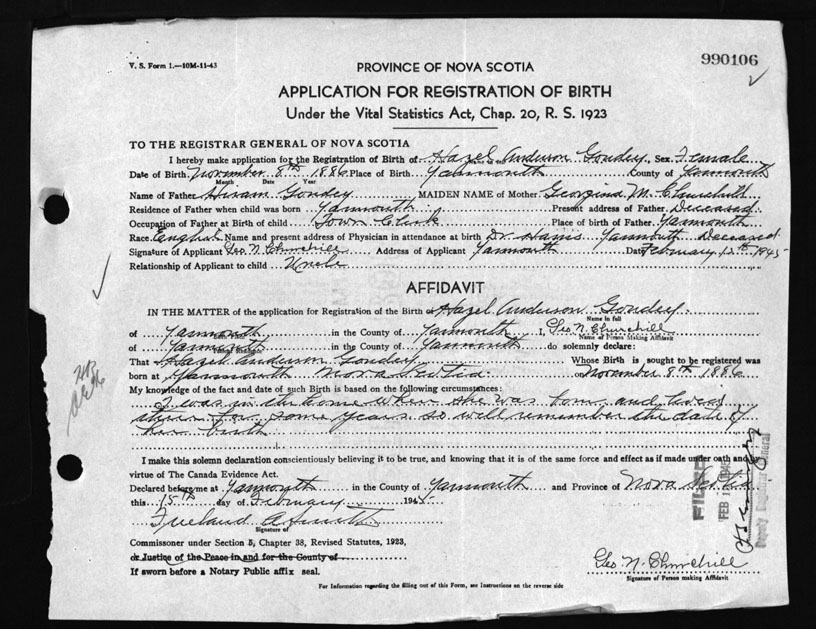 V. S. Form 1.—10M-11-43
990106
PROVINCE OF NOVA SCOTIA
APPLICATION FOR REGISTRATION OF BIRTH
Under the Vital Statistics Act, Chap. 20, R. S. 1923
TO THE REGISTRAR GENERAL OF NOVA SCOTIA
I hereby make application for the Registration of Birth of Hazel Anderson Gondey, Sex, Female
Date of Birth, November 8th, 1886 Place of Birth Yarmouth County of Yarmouth
Month Date Year
Name of Father Hiram Gondey MAIDEN NAME of Mother Georgina M. Churchill
Residence of Father when child was born Yarmouth Present address of Father Deceased
Occupation of Father at Birth of child Town Clerk Place of birth of Father, Yarmouth
Race English Name and present address of Physician in attendance at birth Dr Harris Yarmouth Deceased
Signature of Applicant Geo. N. Churchill Address of Applicant Yarmouth Date February 1945
Relationship of Applicant to child Uncle
AFFIDAVIT
IN THE MATTER of the application for Registration of the Birth of Hazel Anderson Gondey
Name in full
of Yarmouth in the County of Yarmouth I, Geo N. Churchill
Name of Person Making Affidavit
of Yarmouth in the County of Yarmouth do solemnly declare:
That Hazel Anderson Gondey Whose Birth is sought to be registered was
born at Yarmouth Nova Scotia on November 8th 1886
My knowledge of the fact and date of such Birth is based on the following circumstances:
I was in the home when she was born and lived
there for some years so well remember the date of
her birth
I make this solemn declaration conscientiously believing it to be true, and knowing that it is of the same force and effect as if made under oath and by
virtue of The Canada Evidence Act.
Declared before me at Yarmouth in the County of Yarmouth and Province of Nova Scotia
this 15th day of February 194
Freeland A Smith
Signature of
Commissioner under Section 5, Chapter 38, Revised Statutes, 1923,
or Justice of the Peace in and for the County of
If sworn before a Notary Public affix seal.
Geo. N. Churchill
Signature of Person making Affidavit
For Information regarding the filling out of this Form, see Instructions on the reverse side
FILED
FEB
Deputy Registrar General